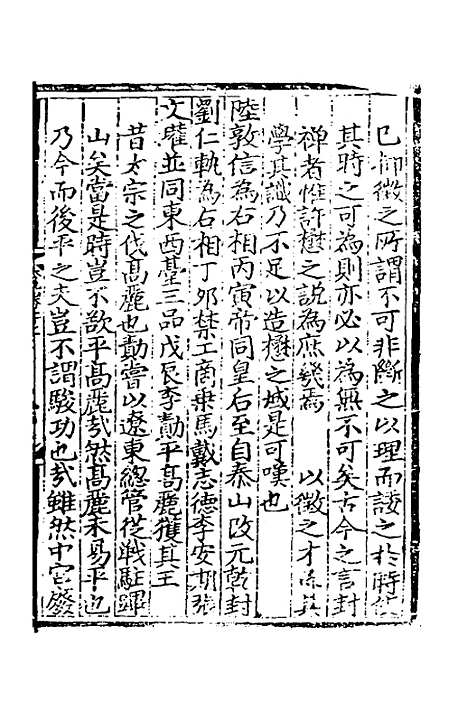 已仰徵之所謂不可非斷之以理而諉之於時使
其時之可為則亦必以為無不可矣古今之言封
禪者惟許懋之說為庶幾焉　以徵之才亦其
學其識乃不足以造懋之域是可嘆也
陸敦信為右相丙寅帝同皇后至自泰山改元乾封
劉仁軌為右相丁卯禁工商乗馬戴志德李安期張
文瓘並同東西臺三品戊辰李勣平髙麗獲其王
昔太宗之伐髙麗也勣嘗以遼東總管從戰駐蹕
山矣當是時豈不欲平髙麗㢤然髙麗未易平也
乃今而後平之夫豈不謂駿功也㢤雖然中宫廢